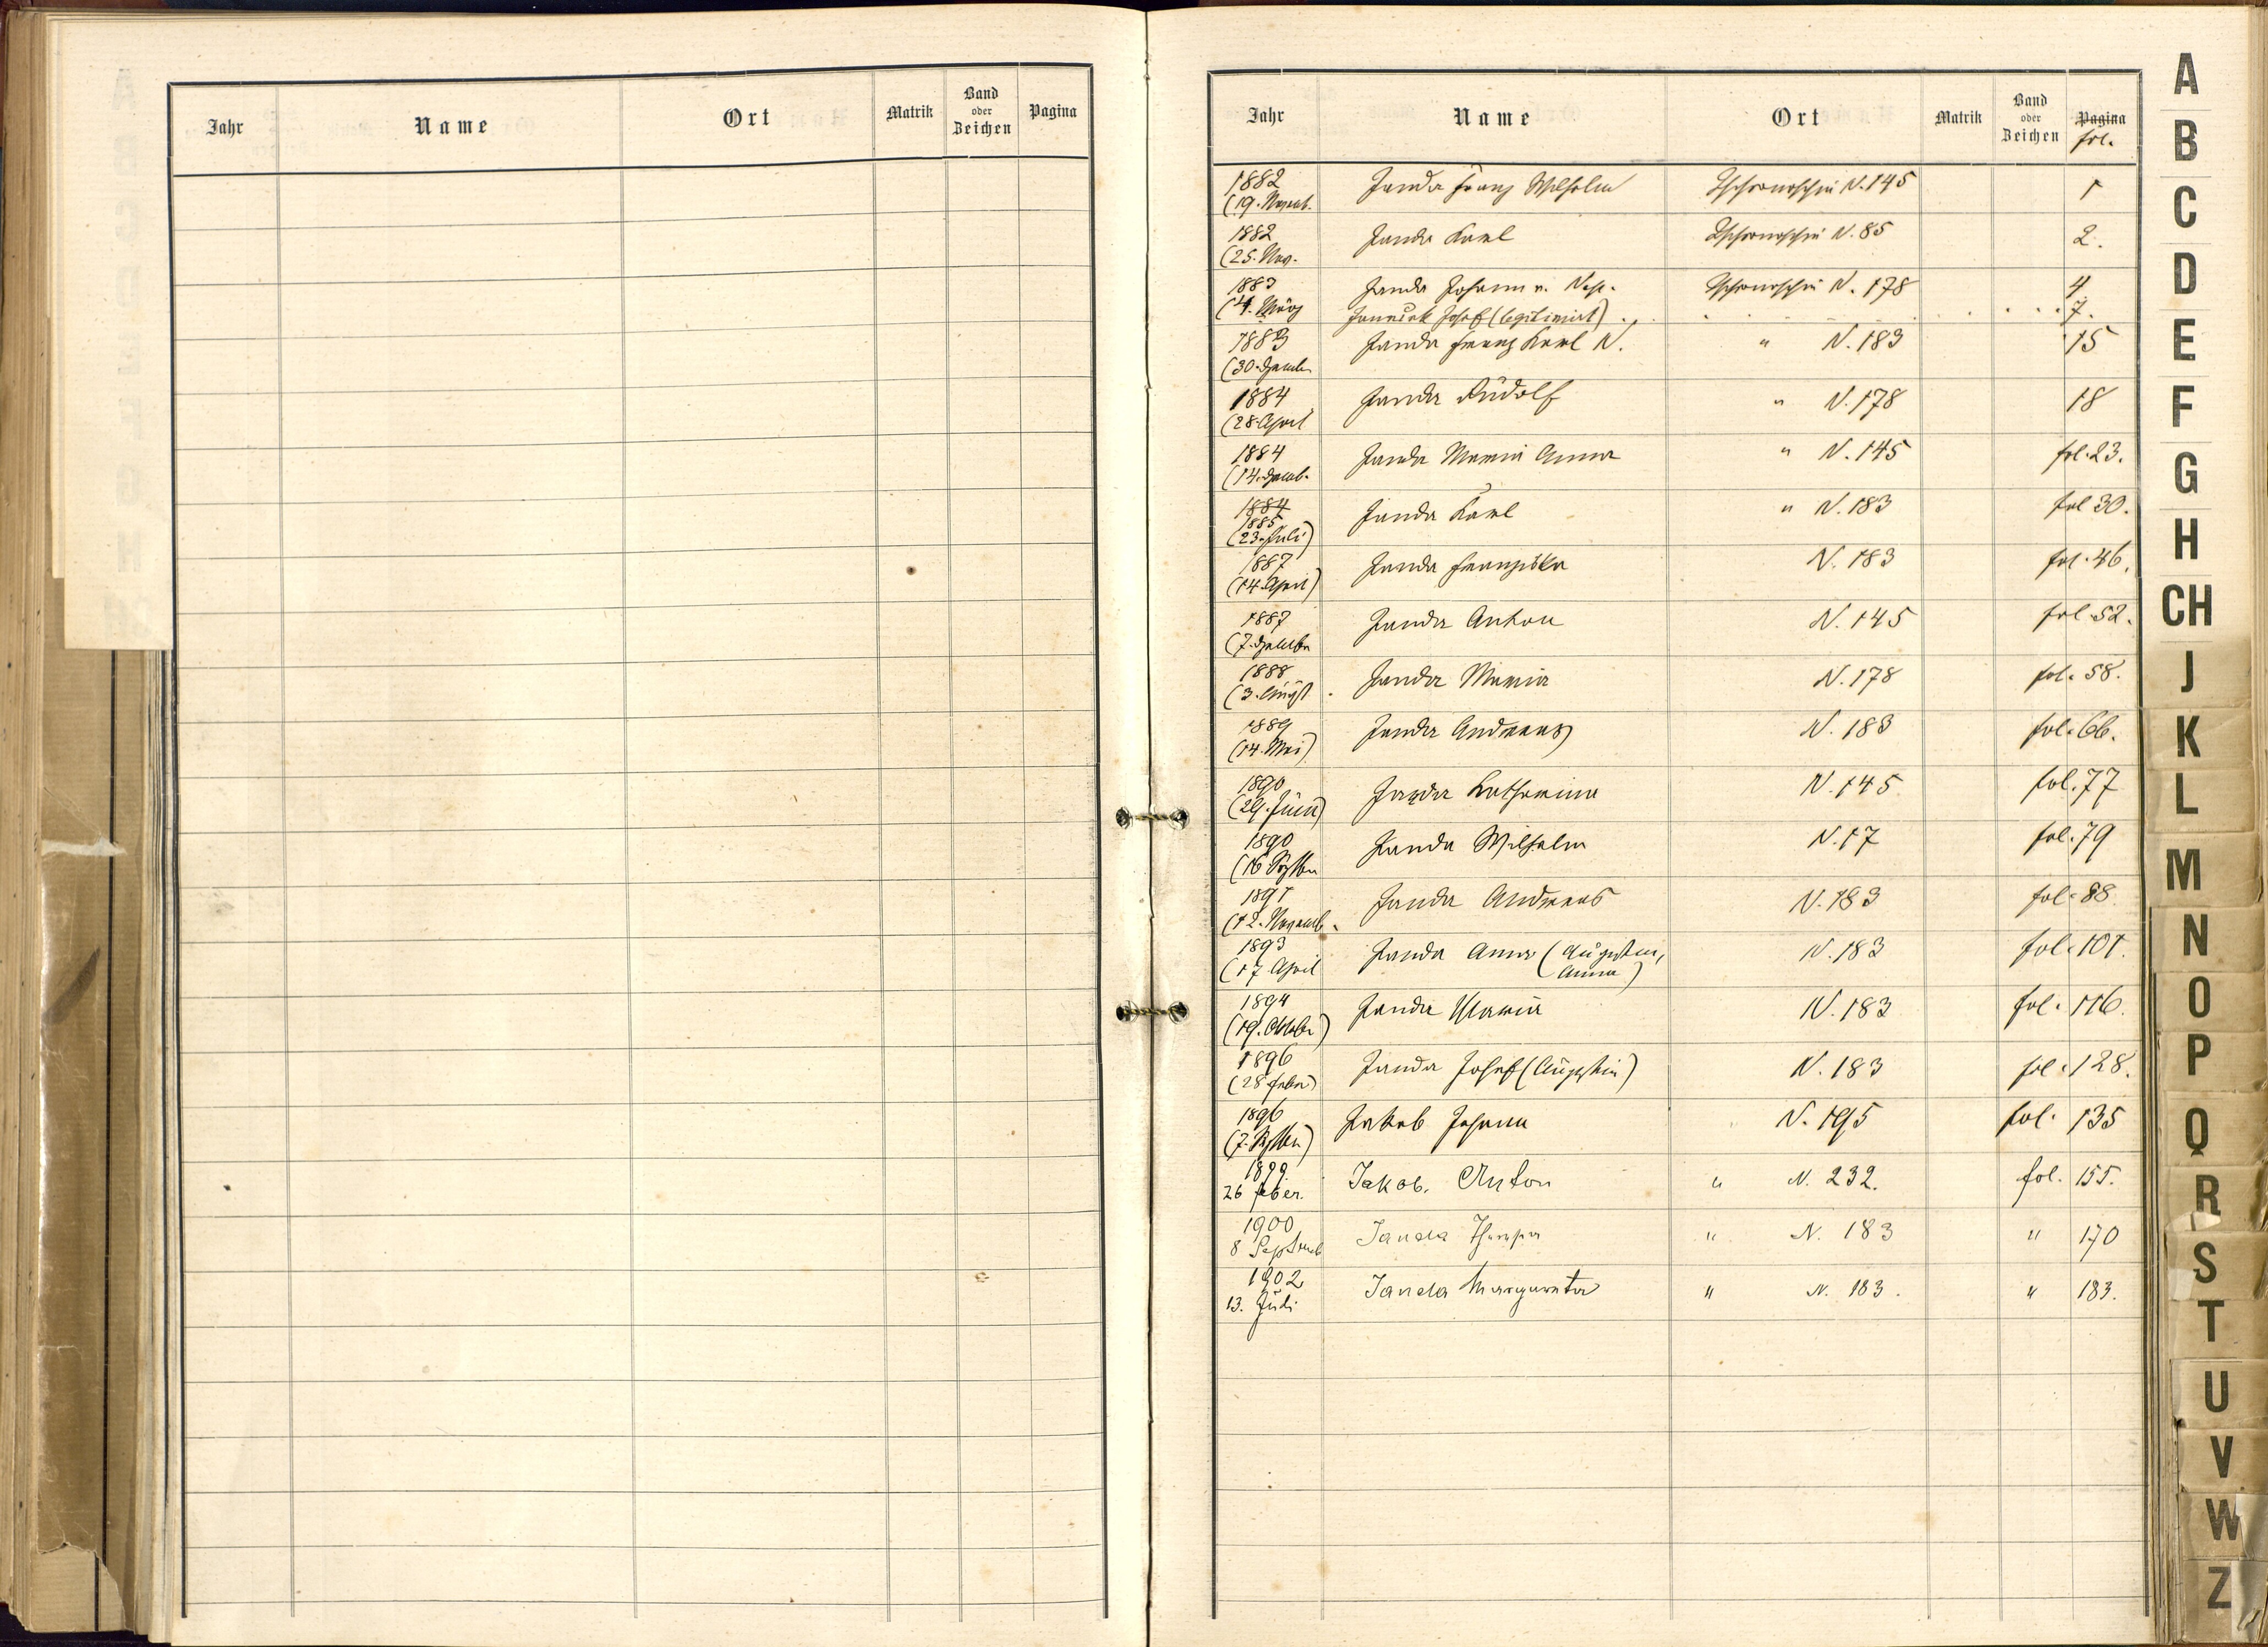 Jahr Name Ort Matrik Band oder Zeichen Pagina
Jahr Name Ort Matrik Band oder Zeichen Pagina
fol.
1882 Janda Franz Wilhelm N. 145 1
(19. Novemb.
1882 Janda Karl N. 85 2.
(25. Nov.
1883 Janda Johann v. Nep. N. 178 4
(4. März Josef (legitimirt) 7.
1883 Janda Franz Karl N. " N. 183 15
(30. Dezemb.
1884 Janda Rudolf " N. 178 18
(28. April
1884 Janda Maria Anna " N. 145 fol. 23.
(14. Dezemb.
1884
1885 Janda Karl " N. 183 fol 30.
(23. Juli)
1887 Janda Franziska N. 183 fol. 46.
(14. April)
1887 Janda Anton N. 145 fol. 52.
(7. Dezember
1888 Janda Maria N. 178 fol. 58.
(3. August
1889 Janda Andreas N. 183 fol. 66.
(14. Mai)
1890 Janda Katharina N. 145 fol. 77
(29. Juni)
1890 Janda Wilhelm N. 17 fol. 79
(16 Septber
1891 Janda Andreas N. 183 fol. 88.
(12. Novemb.
1893 Janda Anna (Augustin, N. 183 fol. 101.
(17 April Anna)
1894 Janda Maria N. 183 fol. 116.
(19. Oktober)
1896 Janda Josef (Augustin) N. 183 fol. 128.
(28 Feber)
1896 Jakob Johann N. 195 fol. 135
(7. Septber)
1899. Jakob. Anton " N. 232. fol. 155.
26 feber.
1900 Janda Theresia " N. 183 " 170
8 Septemb
1902 Janda Margareta " N. 183. " 183.
13. Juli
A
B
C
D
E
F
G
H
CH
J
K
L
M
N
O
P
Q
R
S
T
U
V
W
Z